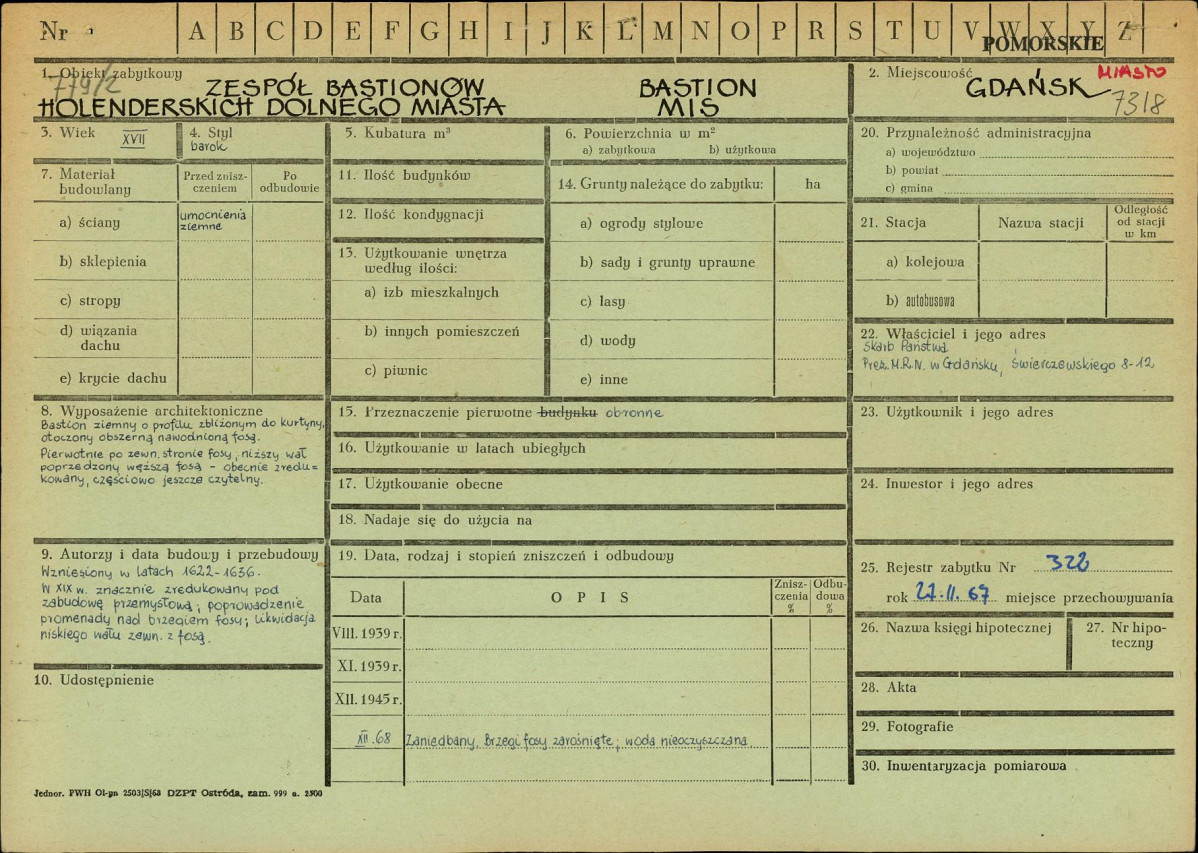 Nr
A B C D E F G H I J K L M N O P R S T U V W X Y Z
POMORSKIE
1. Obiekt zabytkowy
779/2
ZESPÓŁ BASTIONÓW
HOLENDERSKICH DOLNEGO MIASTA
BASTION
MIS
2. Miejscowość
GDAŃSK
MIASTO
7318
3. Wiek XVII
4. Styl
barok
5. Kubatura m³
6. Powierzchnia w m²
a) zabytkowa b) użytkowa
20. Przynależność administracyjna
a) województwo
b) powiat
c) gmina
7. Materiał
budowlany
Przed znisz-
czeniem
Po
odbudowie
a) ściany
umocnienia
ziemne
b) sklepienia
c) stropy
d) wiązania
dachu
e) krycie dachu
11. Ilość budynków
12. Ilość kondygnacji
13. Użytkowanie wnętrza
według ilości:
a) izb mieszkalnych
b) innych pomieszczeń
c) piwnic
14. Grunty należące do zabytku: ha
a) ogrody stylowe
b) sady i grunty uprawne
c) lasy
d) wody
e) inne
21. Stacja
Nazwa stacji
Odległość
od stacji
w km
a) kolejowa
b) autobusowa
22. Właściciel i jego adres
Skarb Państwa
Prez. M.R.N. w Gdańsku, Świerczewskiego 8-12
8. Wyposażenie architektoniczne
Bastion ziemny o profilu zbliżonym do kurtyny,
otoczony obszerną nawodnioną fosą.
Pierwotnie po zewn. stronie fosy, niższy wał
poprzedzony węższą fosą - obecnie zredu=
kowany, częściowo jeszcze czytelny.
15. Przeznaczenie pierwotne budynku obronne
16. Użytkowanie w latach ubiegłych
17. Użytkowanie obecne
18. Nadaje się do użycia na
23. Użytkownik i jego adres
24. Inwestor i jego adres
9. Autorzy i data budowy i przebudowy
Wzniesiony w latach 1622-1636.
W XIX w. znacznie zredukowany pod
zabudowę przemysłową; poprowadzenie
promenady nad brzegiem fosy; likwidacja
niskiego wału zewn. z fosą.
10. Udostępnienie
19. Data, rodzaj i stopień zniszczeń i odbudowy
Data
OPIS
Znisz-
czenia
%
Odbu-
dowa
%
VIII. 1939 r.
XI. 1939 r.
XII. 1945 r.
XII.68 Zaniedbany. Brzegi fosy zarośnięte; woda nieoczyszczana.
25. Rejestr zabytku Nr 322
rok 27.II.67 miejsce przechowywania
26. Nazwa księgi hipotecznej
27. Nr hipo-
teczny
28. Akta
29. Fotografie
30. Inwentaryzacja pomiarowa
Jednor. PWH Ol-pn 2503/S/68 DZPT Ostróda, zam. 999 n. 2500